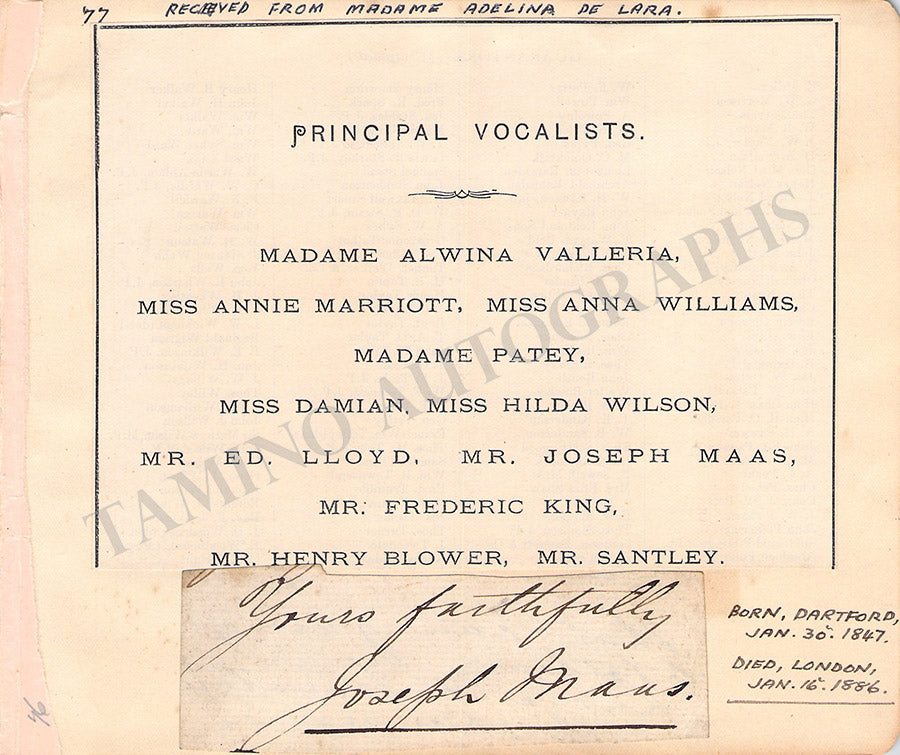 77 RECEIVED FROM MADAME ADELINA DE LARA.
PRINCIPAL VOCALISTS.
MADAME ALWINA VALLERIA,
MISS ANNIE MARRIOTT, MISS ANNA WILLIAMS,
MADAME PATEY,
MISS DAMIAN, MISS HILDA WILSON,
MR. ED. LLOYD, MR. JOSEPH MAAS,
MR. FREDERIC KING,
MR. HENRY BLOWER, MR. SANTLEY.
TAMINO AUTOGRAPHS
Yours faithfully
Joseph Maas.
BORN, DARTFORD,
JAN. 30. 1847.
DIED, LONDON,
JAN. 16. 1886.